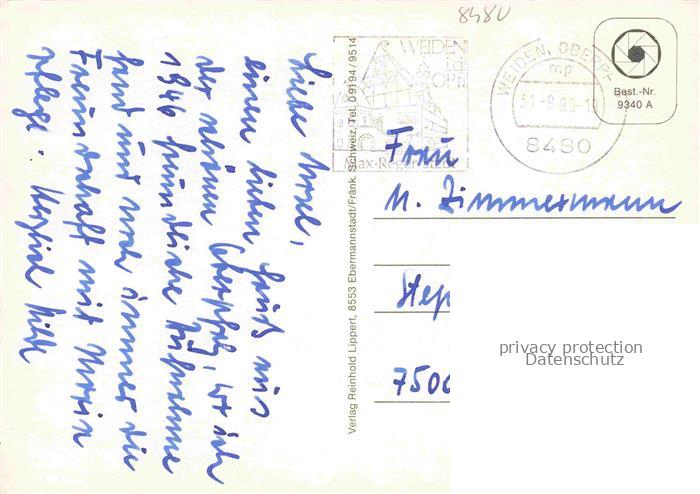 8480
WEIDEN
OPf
Max-Reger-Stadt
WEIDEN, OBERPF
mp
31.-8.90-10
8480
Best.-Nr.
9340 A
Frau
M. Zimmermann
Step
7500
privacy protection
Datenschutz
Verlag Reinhold Lippert, 8553 Ebermannstadt/Fränk. Schweiz, Tel. 09194/9514
Liebe
einen lieben Gruß aus
der schönen Oberpfalz, wo ich
1946 freundliche Aufnahme
fand und noch immer die
Freundschaft mit
pflege. Herzlich